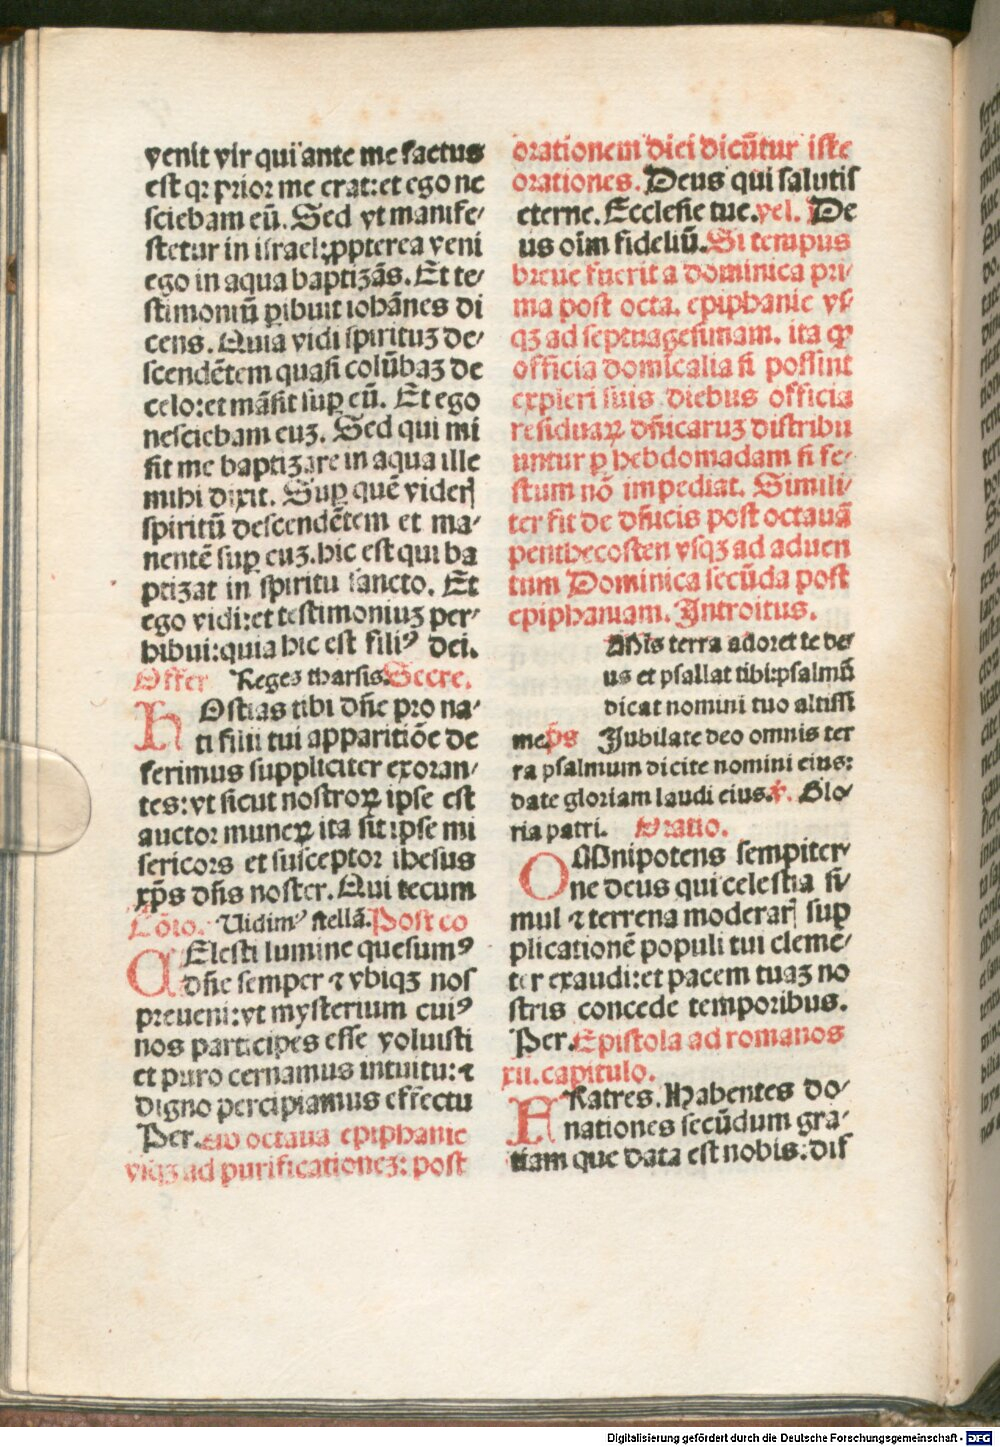 venit vir qui ante me factus
est qꝛ prior me erat: et ego ne
sciebam eū. Sed vt manife⸗
stetur in israel: ꝓpterea veni
ego in aqua baptizās. Et te⸗
stimoniū ꝑibuit iohānes di
cens. Quia vidi spirituꝫ de⸗
scendētem quasi colūbaꝫ de
celo: et māsit suꝑ eū. Et ego
nesciebam euꝫ. Sed qui mi
sit me baptizare in aqua ille
mihi dixit. Suꝑ quē viderꝭ
spiritū descendētem et ma⸗
nentē suꝑ euꝫ. hic est qui ba
ptizat in spiritu sancto. Et
ego vidi: et testimoniuꝫ per⸗
hibui: quia hic est filiꝰ dei.
Offer Reges tharsis. Secre.
HOstias tibi dn̄e pro na⸗
ti filii tui apparitiōe de
ferimus suppliciter exoran⸗
tes: vt sicut nostroꝝ ipse est
auctor muneꝝ ita sit ipse mi
sericors et susceptor ihesus
xp̄s dn̄s noster. Qui tecum
Cōio. Uidimꝰ stellā. Post co
CElesti lumine quesumꝰ
dn̄e semper ⁊ vbiqꝫ nos
preueni: vt mysterium cuiꝰ
nos participes esse voluisti
et puro cernamus intuitu: ⁊
digno percipiamus effectu
Per. Ab octaua epiphanie
vsqꝫ ad purificationeꝫ: post
orationem diei dicūtur iste
orationes. Deus qui salutis
eterne. Ecclesie tue. vel. De
us oīm fideliū. Si tempus
breue fuerit a dominica pri⸗
ma post octa. epiphanie vs
qꝫ ad septuagesimam. ita ꝙ
officia domīcalia si possint
expleri suis diebus officia
residuaꝝ dn̄icaruꝫ distribu
untur ꝑ hebdomadam si fe⸗
stum nō impediat. Simili⸗
ter fit de dn̄icis post octauā
penthecosten vsqꝫ ad aduen
tum Dominica secūda post
epiphaniam. Introitus.
OMnis terra adoret te de⸗
us et psallat tibi: psalmū
dicat nomini tuo altissi
me. p̄s Jubilate deo omnis ter
ra psalmum dicite nomini eius:
date gloriam laudi eius. ℣. Glo⸗
ria patri. Oratio.
OMnipotens sempiter⸗
ne deus qui celestia si⸗
mul ⁊ terrena moderarꝭ suꝑ
plicationē populi tui cleme⸗
ter exaudi: et pacem tuaꝫ no
stris concede temporibus.
Per. Epistola ad romanos
xii. capitulo.
FRatres. Habentes do⸗
nationes secūdum gra⸗
tiam que data est nobis: dif
Digitalisierung gefördert durch die Deutsche Forschungsgemeinschaft - DFG